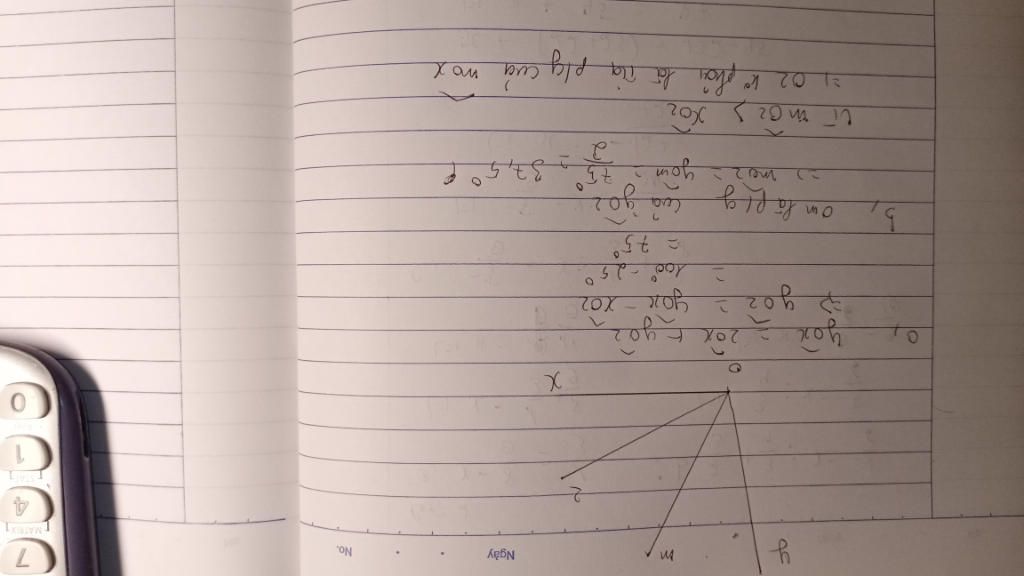 Ngày
No.
y
m
z
O
x
a, yOx = zOx + yOz
=> yOz = yOx - xOz
= 100° - 25°
= 75°
b, Om là p/g của yOz
=> mOz = yOm = 75°/2 = 37,5°
Vì mOz > xOz
=> Oz k° phải là tia p/g của mOx
7
4
1
0
MATRIX
STAT